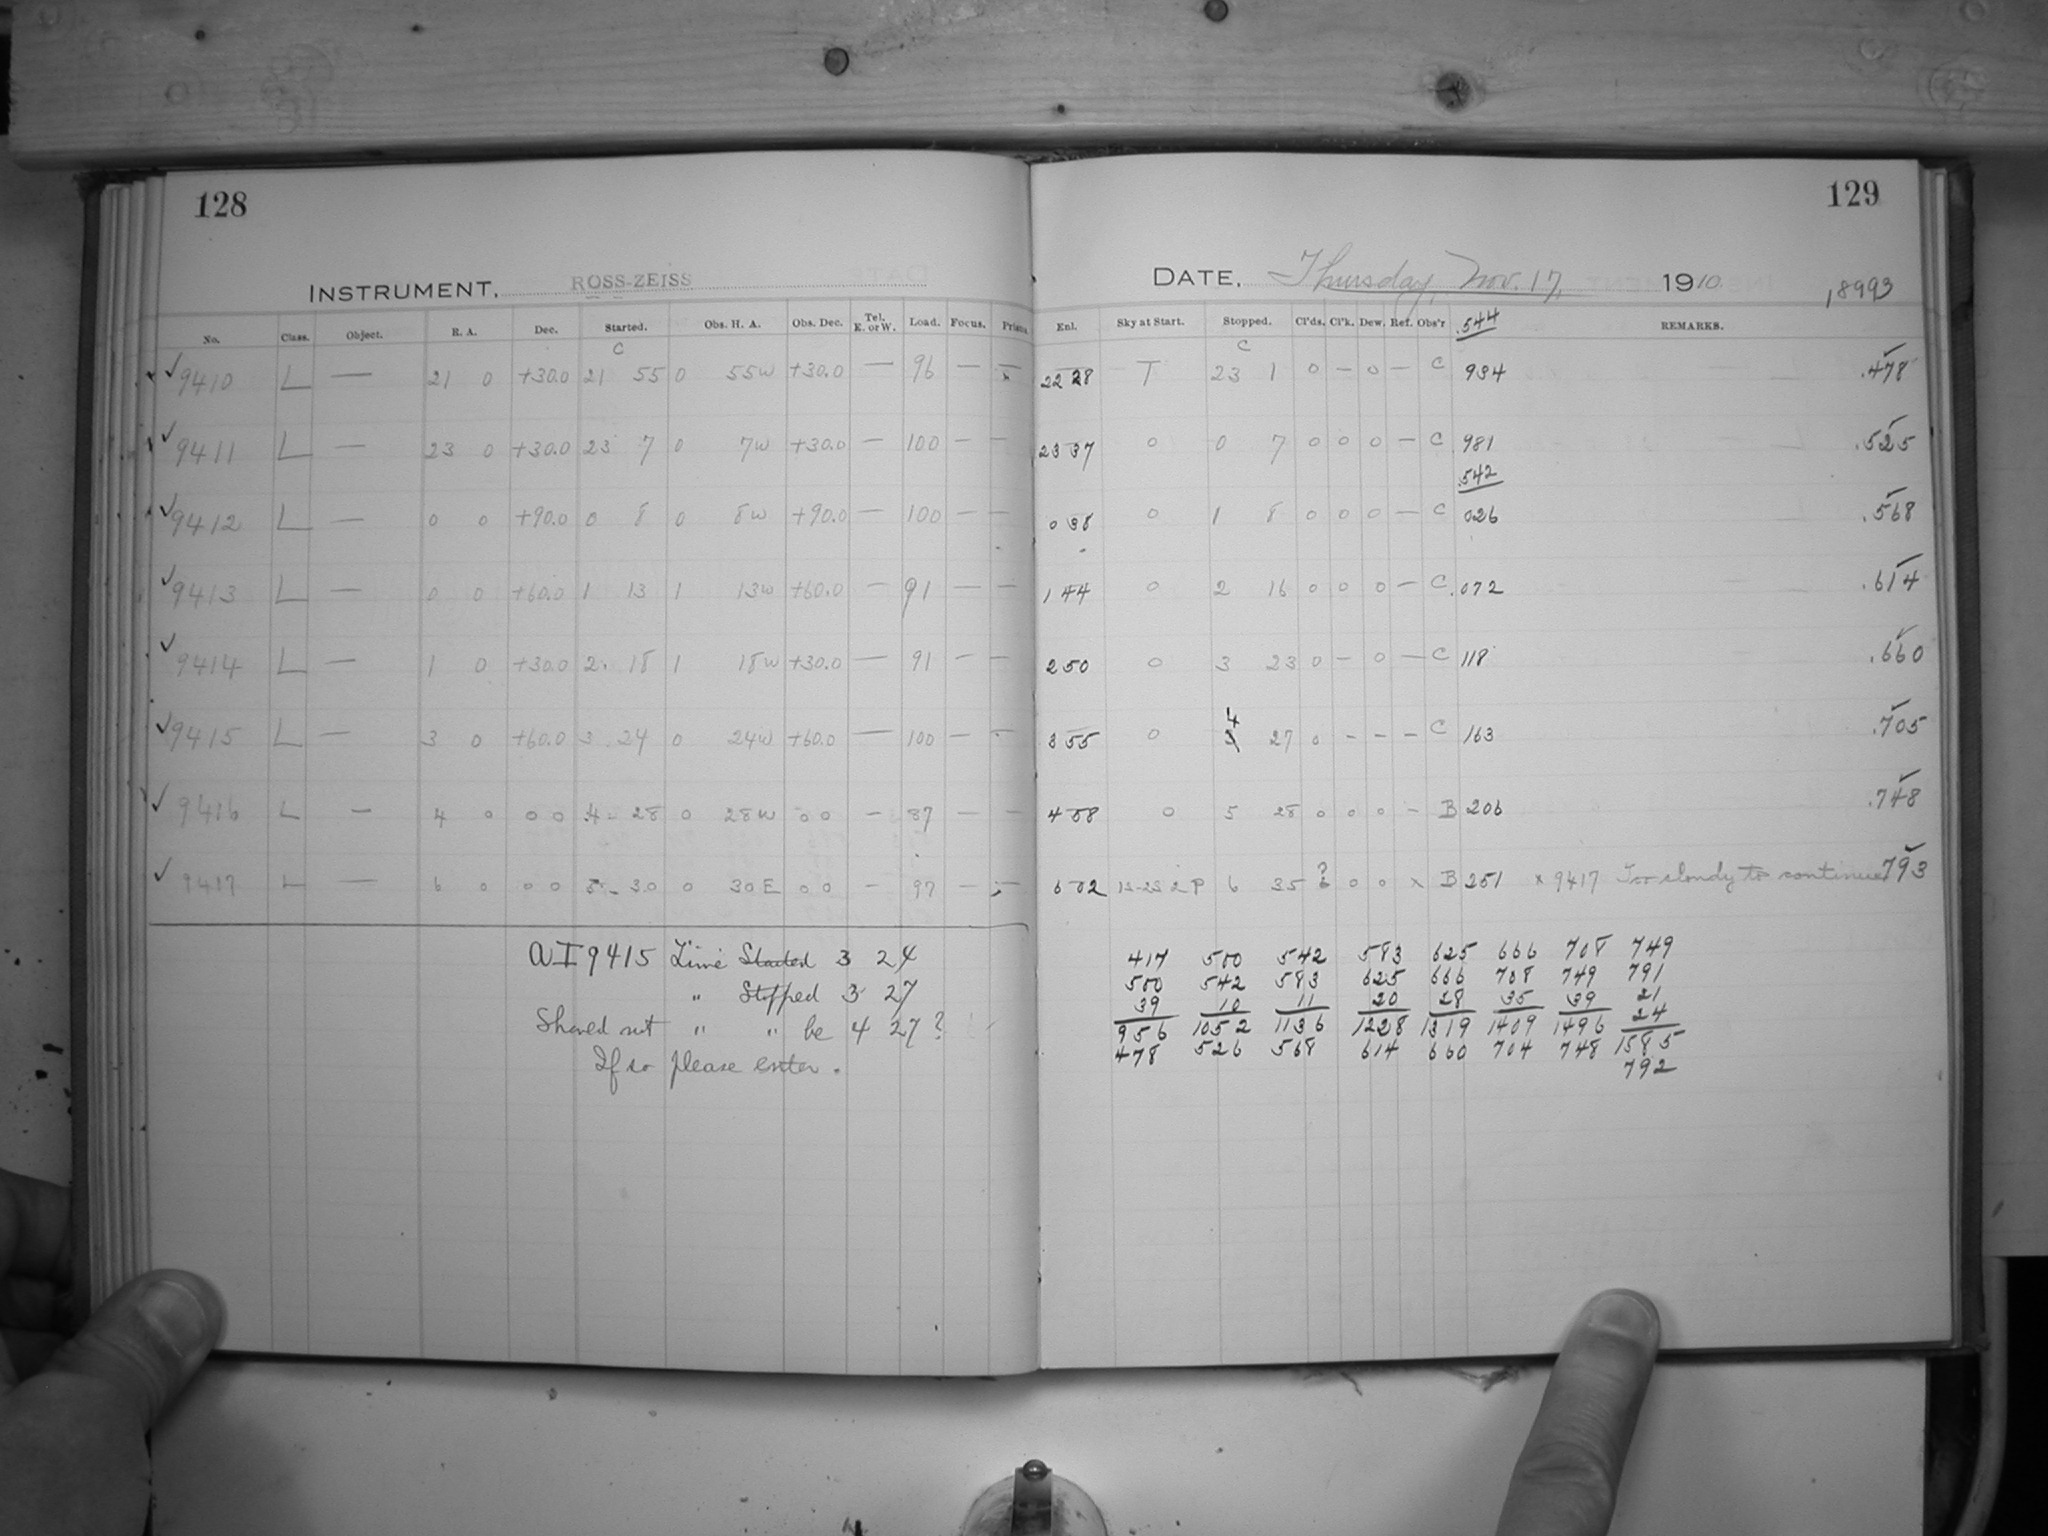 128
INSTRUMENT, ROSS-ZEISS
No. Class. Object. R. A. Dec. Started. Obs. H. A. Obs. Dec. Tel. E. or W. Load. Focus. Prism.
C
✓9410 L — 21 0 +30.0 21 55 0 55w +30.0 — 96 — —
✓9411 L — 23 0 +30.0 23 7 0 7w +30.0 — 100 — —
✓9412 L — 0 0 +90.0 0 8 0 8w +90.0 — 100 — —
✓9413 L — 0 0 +60.0 1 13 1 13w +60.0 — 91 — —
✓9414 L — 1 0 +30.0 2 18 1 18w +30.0 — 91 — —
✓9415 L — 3 0 +60.0 3 24 0 24w +60.0 — 100 — —
✓9416 L — 4 0 0 0 4 28 0 28w 0 0 — 87 — —
✓9417 L — 6 0 0 0 5 30 0 30E 0 0 — 97 — —
AI 9415 Time Started 3 24
" Stopped 3 27
Should not " " be 4 27?
If so please enter.
129
DATE, Thursday, Nov. 17, 1910
18993
Exl. Sky at Start. Stopped. Cl'ds. Cl'k. Dew. Ref. Obs'r .544 REMARKS.
C
22 28 T 23 1 0 — 0 — C 934 .478
23 37 0 0 7 0 0 0 — C 981 .525
.542
0 38 0 1 8 0 0 0 — C 026 .568
1 44 0 2 16 0 0 0 — C .072 .614
2 50 0 3 23 0 — 0 — C 118 .660
4
3 55 0 3 27 0 — — — C 163 .705
4 58 0 5 28 0 0 0 — B 206 .748
6 02 6 35 ? 0 0 x B 251 x 9417 Too cloudy to continue .793
417 500 542 583 625 666 708 749
500 542 583 625 666 708 749 791
39 10 11 20 28 35 39 21
24
956 1052 1136 1228 1319 1409 1496 1585
478 526 568 614 660 704 748 792